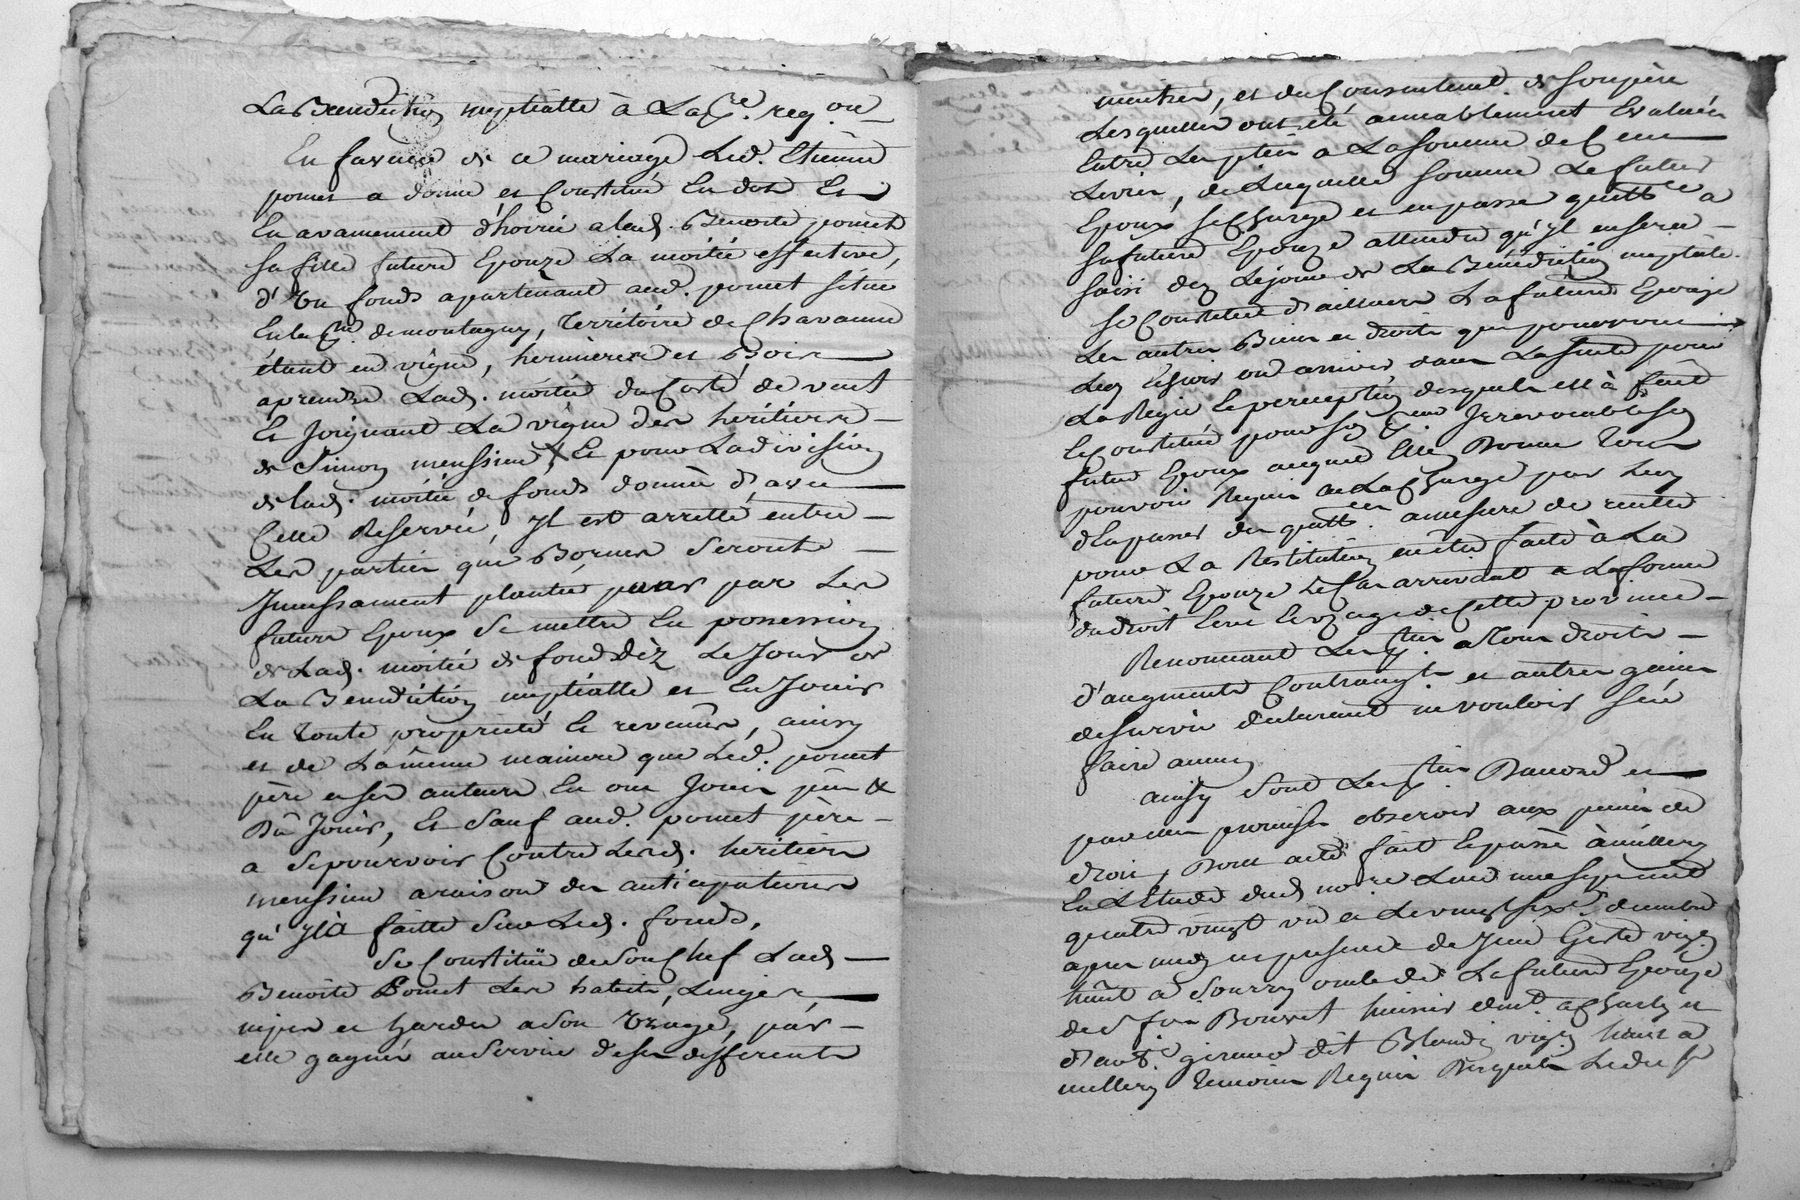 La Benediction nuptialle à La pre. reqon
En faveur de ce mariage Led. Etienne
pomet a donné et Constitué En dot Et
En avancement d'hoirie a lad. Benoite pomet
sa fille future Epouze La moitié effective,
d'Un fonds apartenant aud. pomet situé
En la psse. de montagny, territoire de Chavanne
étant en vigne, hermiere et Bois
aprendre Lad. moitié du Costé de vent
Et Joignant La vigne des heritiers
de Simon meyssieu, Et pour La division
de lad. moitié de fonds donnée d'avec
Celle Reservée, Jl est arretté entre
Les parties que Bornes seront
Jncessament plantée par Les
futurs Epoux se mettre En possession
de Lad. moitié de fond dèz Le Jour de
La Benediction nuptialle et En Jouir
En toute proprieté Et revenus, ainsy
et de La même maniere que Led. pomet
père et ses auteurs En ont Joui pû &
Dû Jouir, Et Sauf aud. pomet père
a se pourvoir Contre Lesd. heritiers
meyssieu a raison des anticipations
qu'Jl a faitte sur Led. fonds,
Se Constitüe de son Chef Lad.
Benoite Pomet Les habits, Linges,
nipes et hardes a son Uzage, par
elle gagnés au Service de ses differents
maitres, et du Consentemt. de son père
Lesquelles ont été amiablement Evaluées
Entre Les pties a La somme de Cent
Livres, de Laquelle somme Le futur
Epoux se Charge et en passe quittce a
sa future Epouze attendu qu'yl en sera
saisi dez Le jour de La Bénédiction nuptiale.
Se Constitue d'ailleurs La future Epouze
Les autres Biens et droits qui pourront
Luy Echoir ou arriver dans La suite pour
La Regie Et perception desquels elle à fait
Et Constitué pour son procur Jrrevocable son
futur Epoux auquel Elle Donne tout
pouvoir Requis a La Charge par Luy
d'En passer des quittces a mesure de recette
pour La Restitution en être faite à La
future Epouze Le Cas arrivant a La forme
du droit Ecrit Et Uzage de Cette province
Renonceant Les pties a tous droits
d'augment Contraugt. et autres gains
de survie declarant ne vouloir s'en
faire aucun
ainsy sont Les pties D'accord et
par eux promis observer aux peines de
droit, Dont acte fait Et passé à millery
En L'Etude dud. nore L'an mil sept cent
quatre vingt un et Le vingt six decembre
apres midy en presence de Jean Gerte vign
habt a Sourzy oncle de La future Epouze
de Sr. fois Bouvet huissier demt. a Charly et
d'antne giraud dit Blondin vign habt a
millery temoins Requis Lesquels Led.